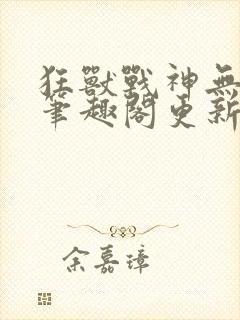 狂獸戰神無
筆趣閣更新
余嘉璋